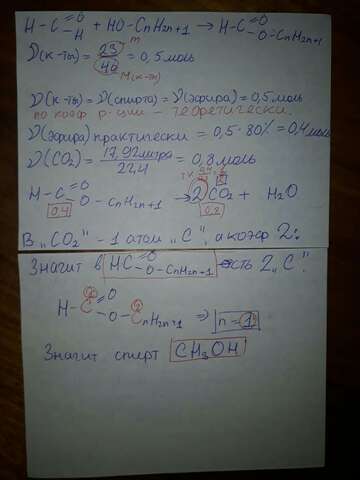 H-C=O-H + HO-CnH2n+1 → H-C=O-O-CnH2n+1
ν(к-ты) = 23/46 = 0,5 моль
m
M(к-ты)
ν(к-ты) = ν(спирта) = ν(эфира) = 0,5 моль
по коэф. р-ции - теоретически.
ν(эфира) практически = 0,5·80% = 0,4 моль
ν(CO2) = 17,92 литра/22,4 = 0,8 моль
H-C=O-O-CnH2n+1 → 2CO2 + H2O
0,4 0,8
В "CO2" - 1 атом "C", а коэф 2:
Значит в HC=O-O-CnH2n+1 есть 2 "C".
H-C=O-O-CnH2n+1 ⇒ n=1
Значит спирт CH3OH